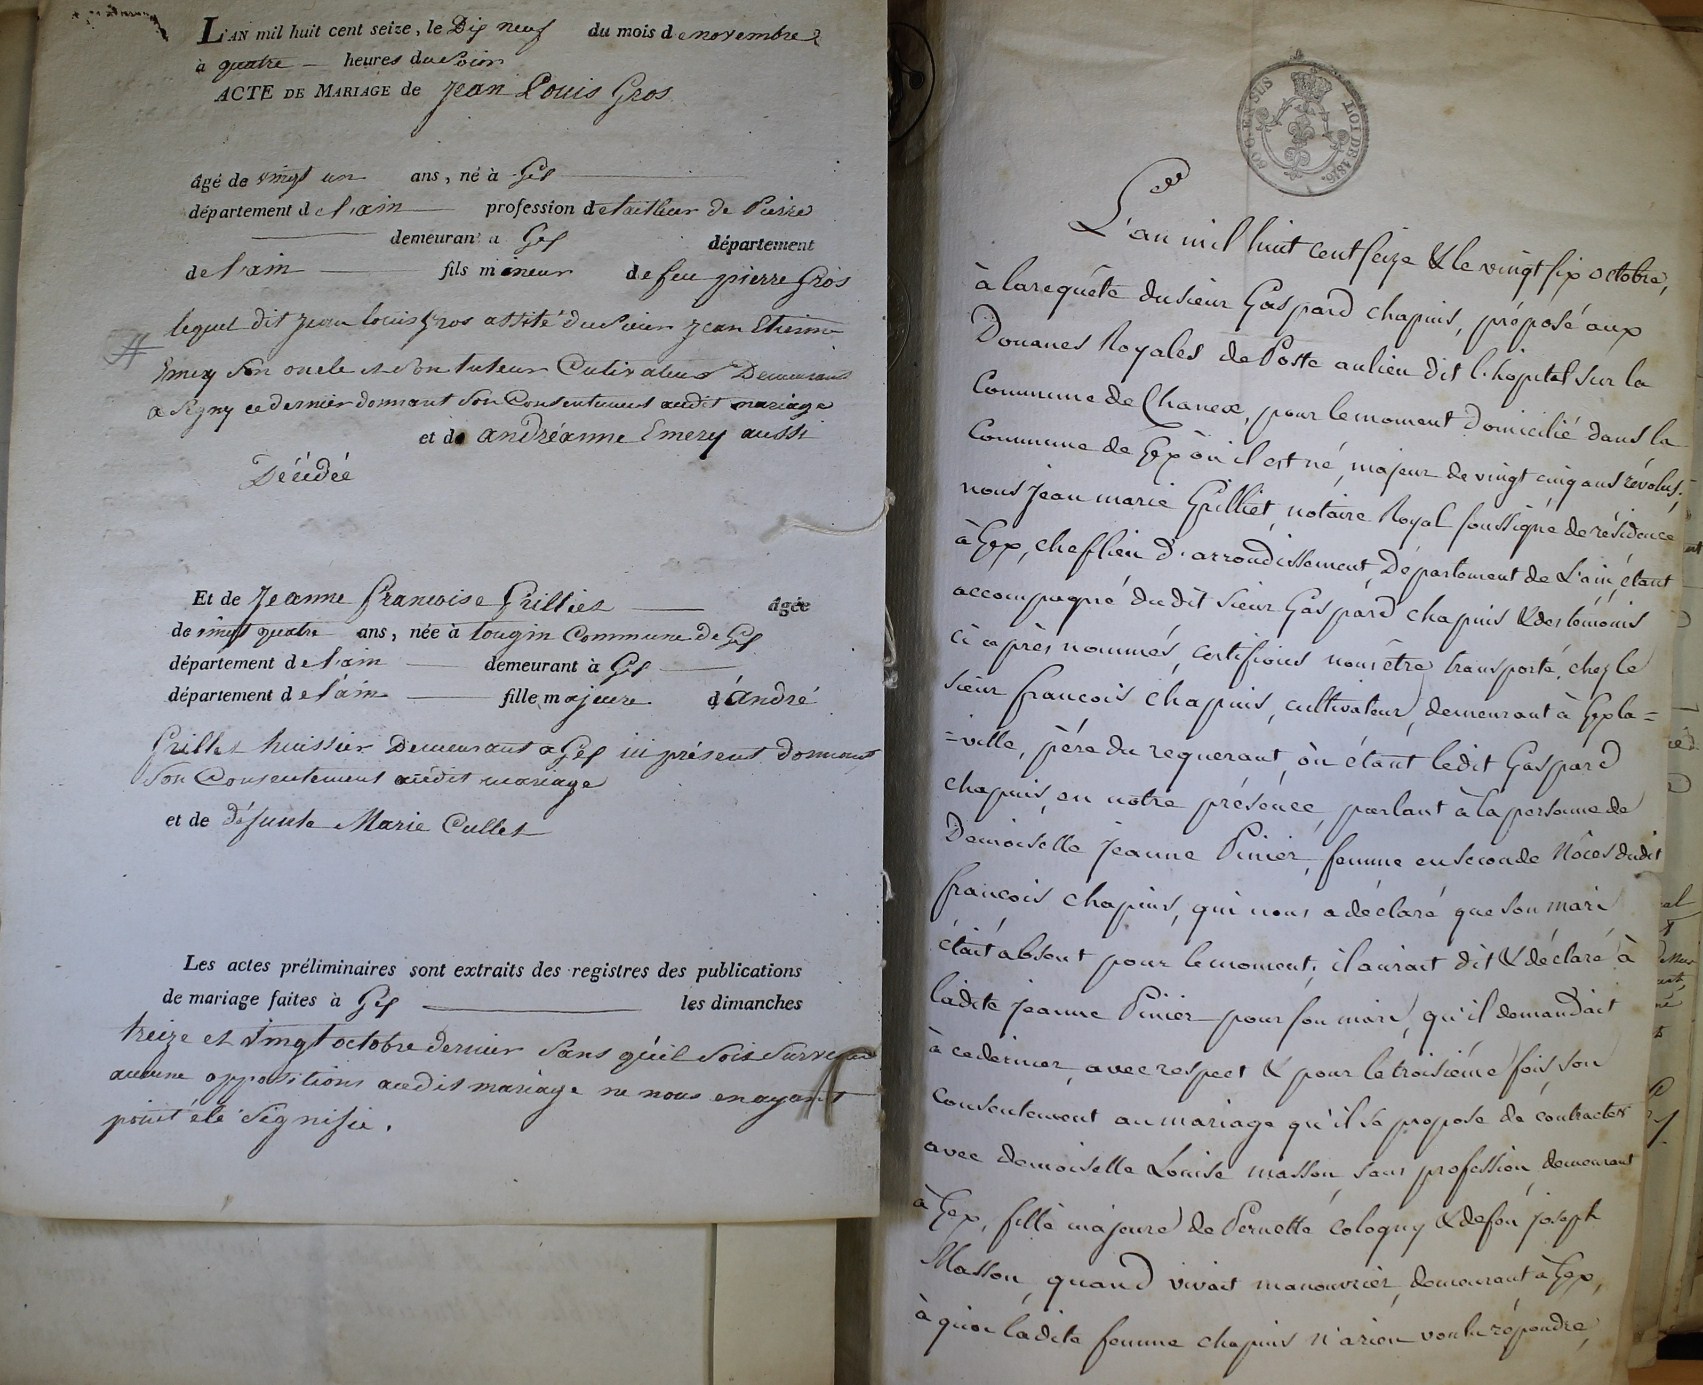 L'AN mil huit cent seize, le Dix neuf du mois de novembre
à quatre heures du Soir
ACTE DE MARIAGE de Jean Louis Gros
âgé de vingt un ans, né à Gex
département de l'ain profession de tailleur de Pierre
demeurant à Gex département
de l'ain fils mineur de feu pierre Gros
lequel dit Jean Louis Gros assité du Sieur Jean Etienne
Emery Son oncle et Son tuteur Cultivateur Demeurant
a Segny ce dernier donnant Son Consentement audit mariage
et de andréanne Emery aussi
Décédée
Et de Jeanne Françoise Grilliet âgée
de vingt quatre ans, née à tougin Commune de Gex
département de l'ain demeurant à Gex
département de l'ain fille majeure d'André
Grillet huissier Demeurant a Gex ici présent donnant
Son Consentement audit mariage
et de défunte Marie Cullet
Les actes préliminaires sont extraits des registres des publications
de mariage faites à Gex les dimanches
treize et vingt octobre dernier Sans qu'il Soit Survenu
aucune oppositions audit mariage ne nous en ayant
point été Signifié.
60 C. EN SUS
LOI DE 1816.
L'an mil huit cent seize & le vingt six octobre,
à la requête du sieur Gaspard chapuis, préposé aux
Douanes Royales de Poste au lieu dit l'hopital sur la
Commune de Chanex, pour le moment Domicilié dans la
Commune de Gex où il est né, majeur de vingt cinq ans révolus,
nous Jean marie Grilliet, notaire Royal soussigné de résidence
à Gex, chef lieu d'arrondissement, Département de L'ain, étant
accompagné dudit sieur Gaspard chapuis & des témoins
ci après nommés, certifions nous être transporté, chez le
sieur françois chapuis, cultivateur, demeurant à Gex la=
=ville, père du requerant, où étant ledit Gaspard
chapuis, en notre présence, parlant à la personne de
Demoiselle Jeanne Pinier, femme en seconde Nôces dudit
françois chapuis, qui nous a déclaré que son mari
était absent pour le moment, il aurait dit & déclaré à
ladite Jeanne Pinier pour son mari, qu'il demandait
à ce dernier, avec respect & pour la troisième fois, son
consentement au mariage qu'il se propose de contracter
avec demoiselle Louise masson, sans profession, demeurant
à Gex, fille majeure de Pernette cologny & de feu joseph
Masson, quand vivait manouvrier, demeurant à Gex,
à quoi ladite femme chapuis n'a rien voulu répondre,